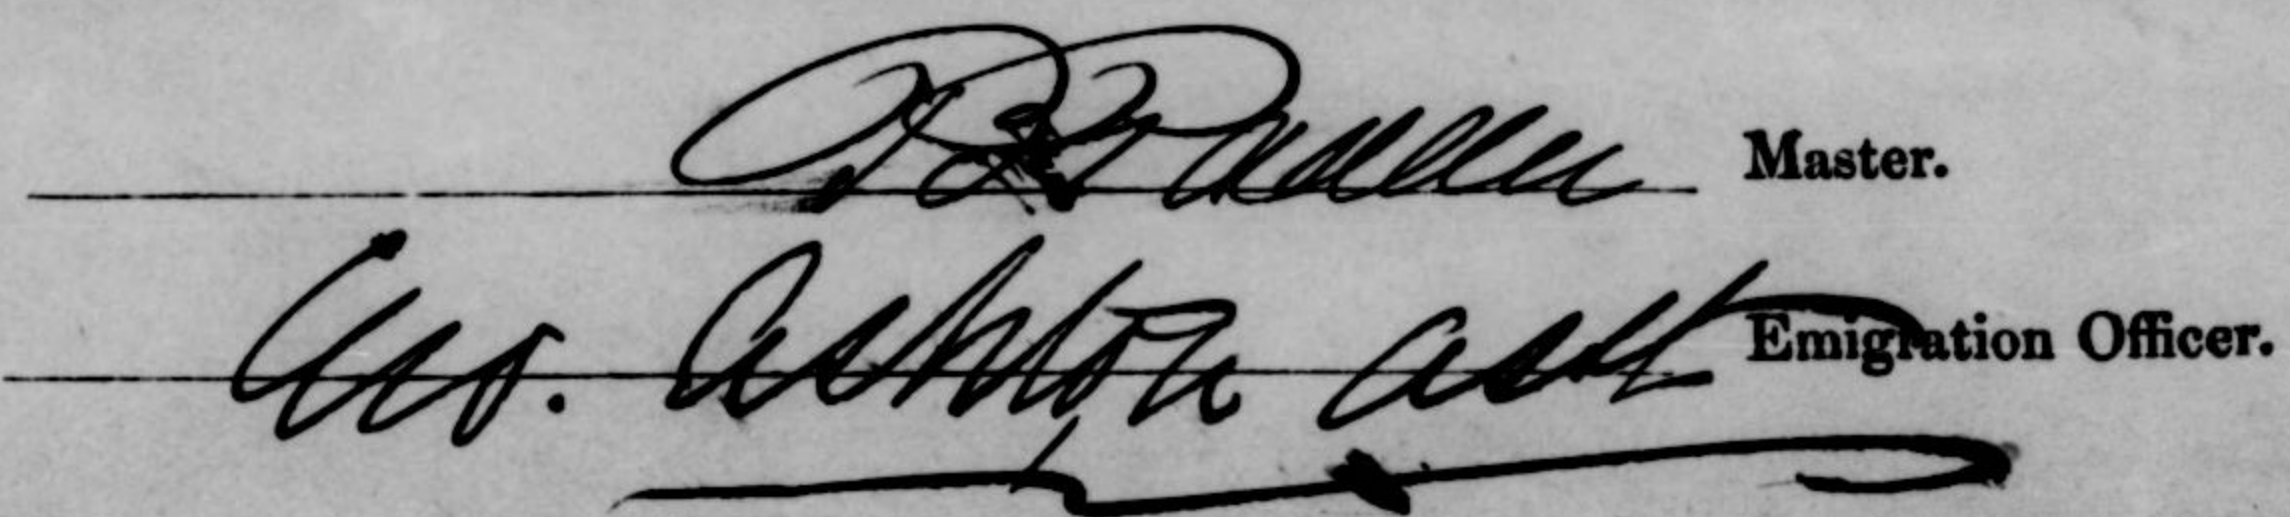 Master.
Geo. Ashton asst Emigration Officer.